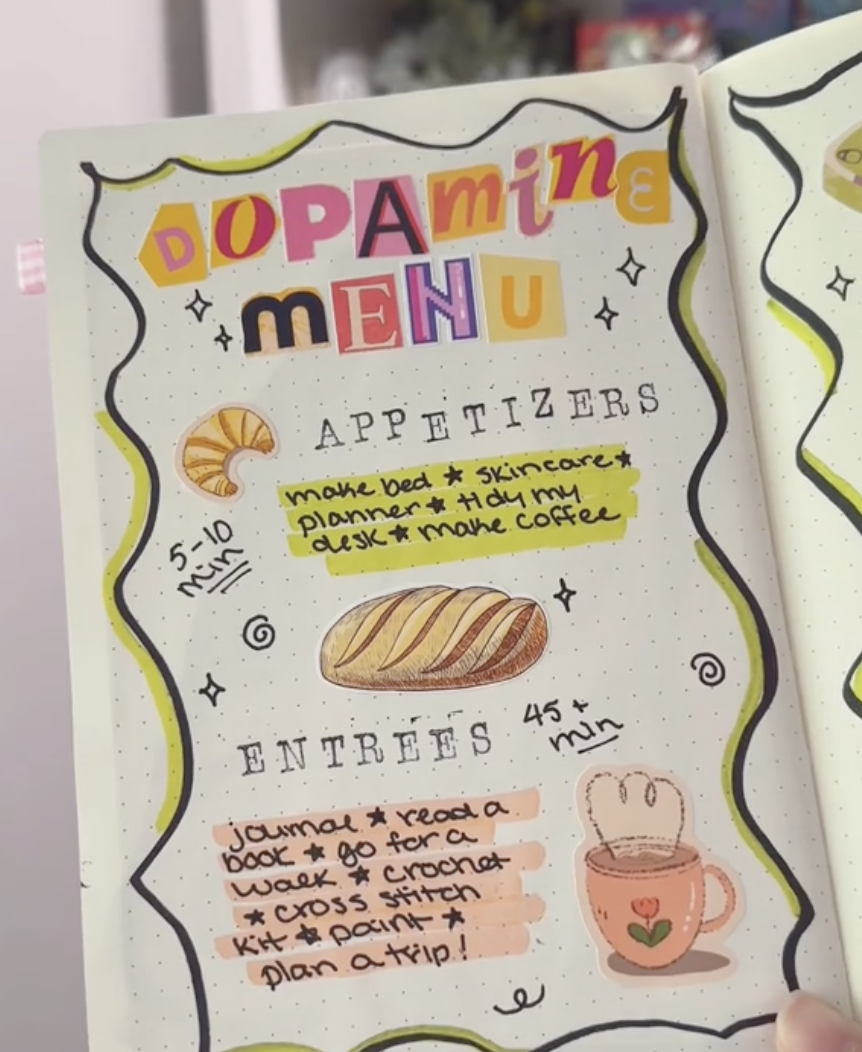 DOPAminE
mENU
APPETIZERS
make bed ★ skincare ★
planner ★ tidy my
desk ★ make coffee
5-10
min
ENTREES
45+
min
journal ★ read a
book ★ go for a
walk ★ crochet
★ cross stitch
kit ★ paint ★
plan a trip!